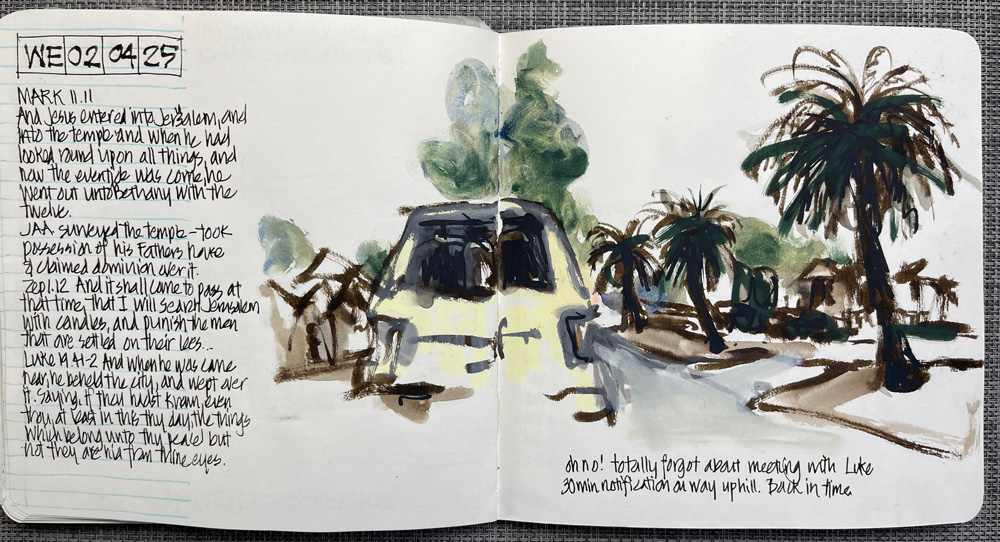 WE 02 04 25
MARK 11.11
And Jesus entered into Jerusalem, and
into the temple and when he had
looked round upon all things, and
now the eventide was come, he
went out unto Bethany with the
twelve.
JAA surveyed the temple - took
possession of his Fathers house
& claimed dominion over it.
Zep 1.12 And it shall come to pass at
that time, that I will search Jerusalem
with candles, and punish the men
that are settled on their lees...
Luke 19.41-2 And when he was come
near, he beheld the city, and wept over
it. Saying, If thou hadst known, even
thou, at least in this thy day, the things
which belong unto thy peace! but
not they are hid from thine eyes.
oh no! totally forgot about meeting with Luke
30min notification on way uphill. Back in time.